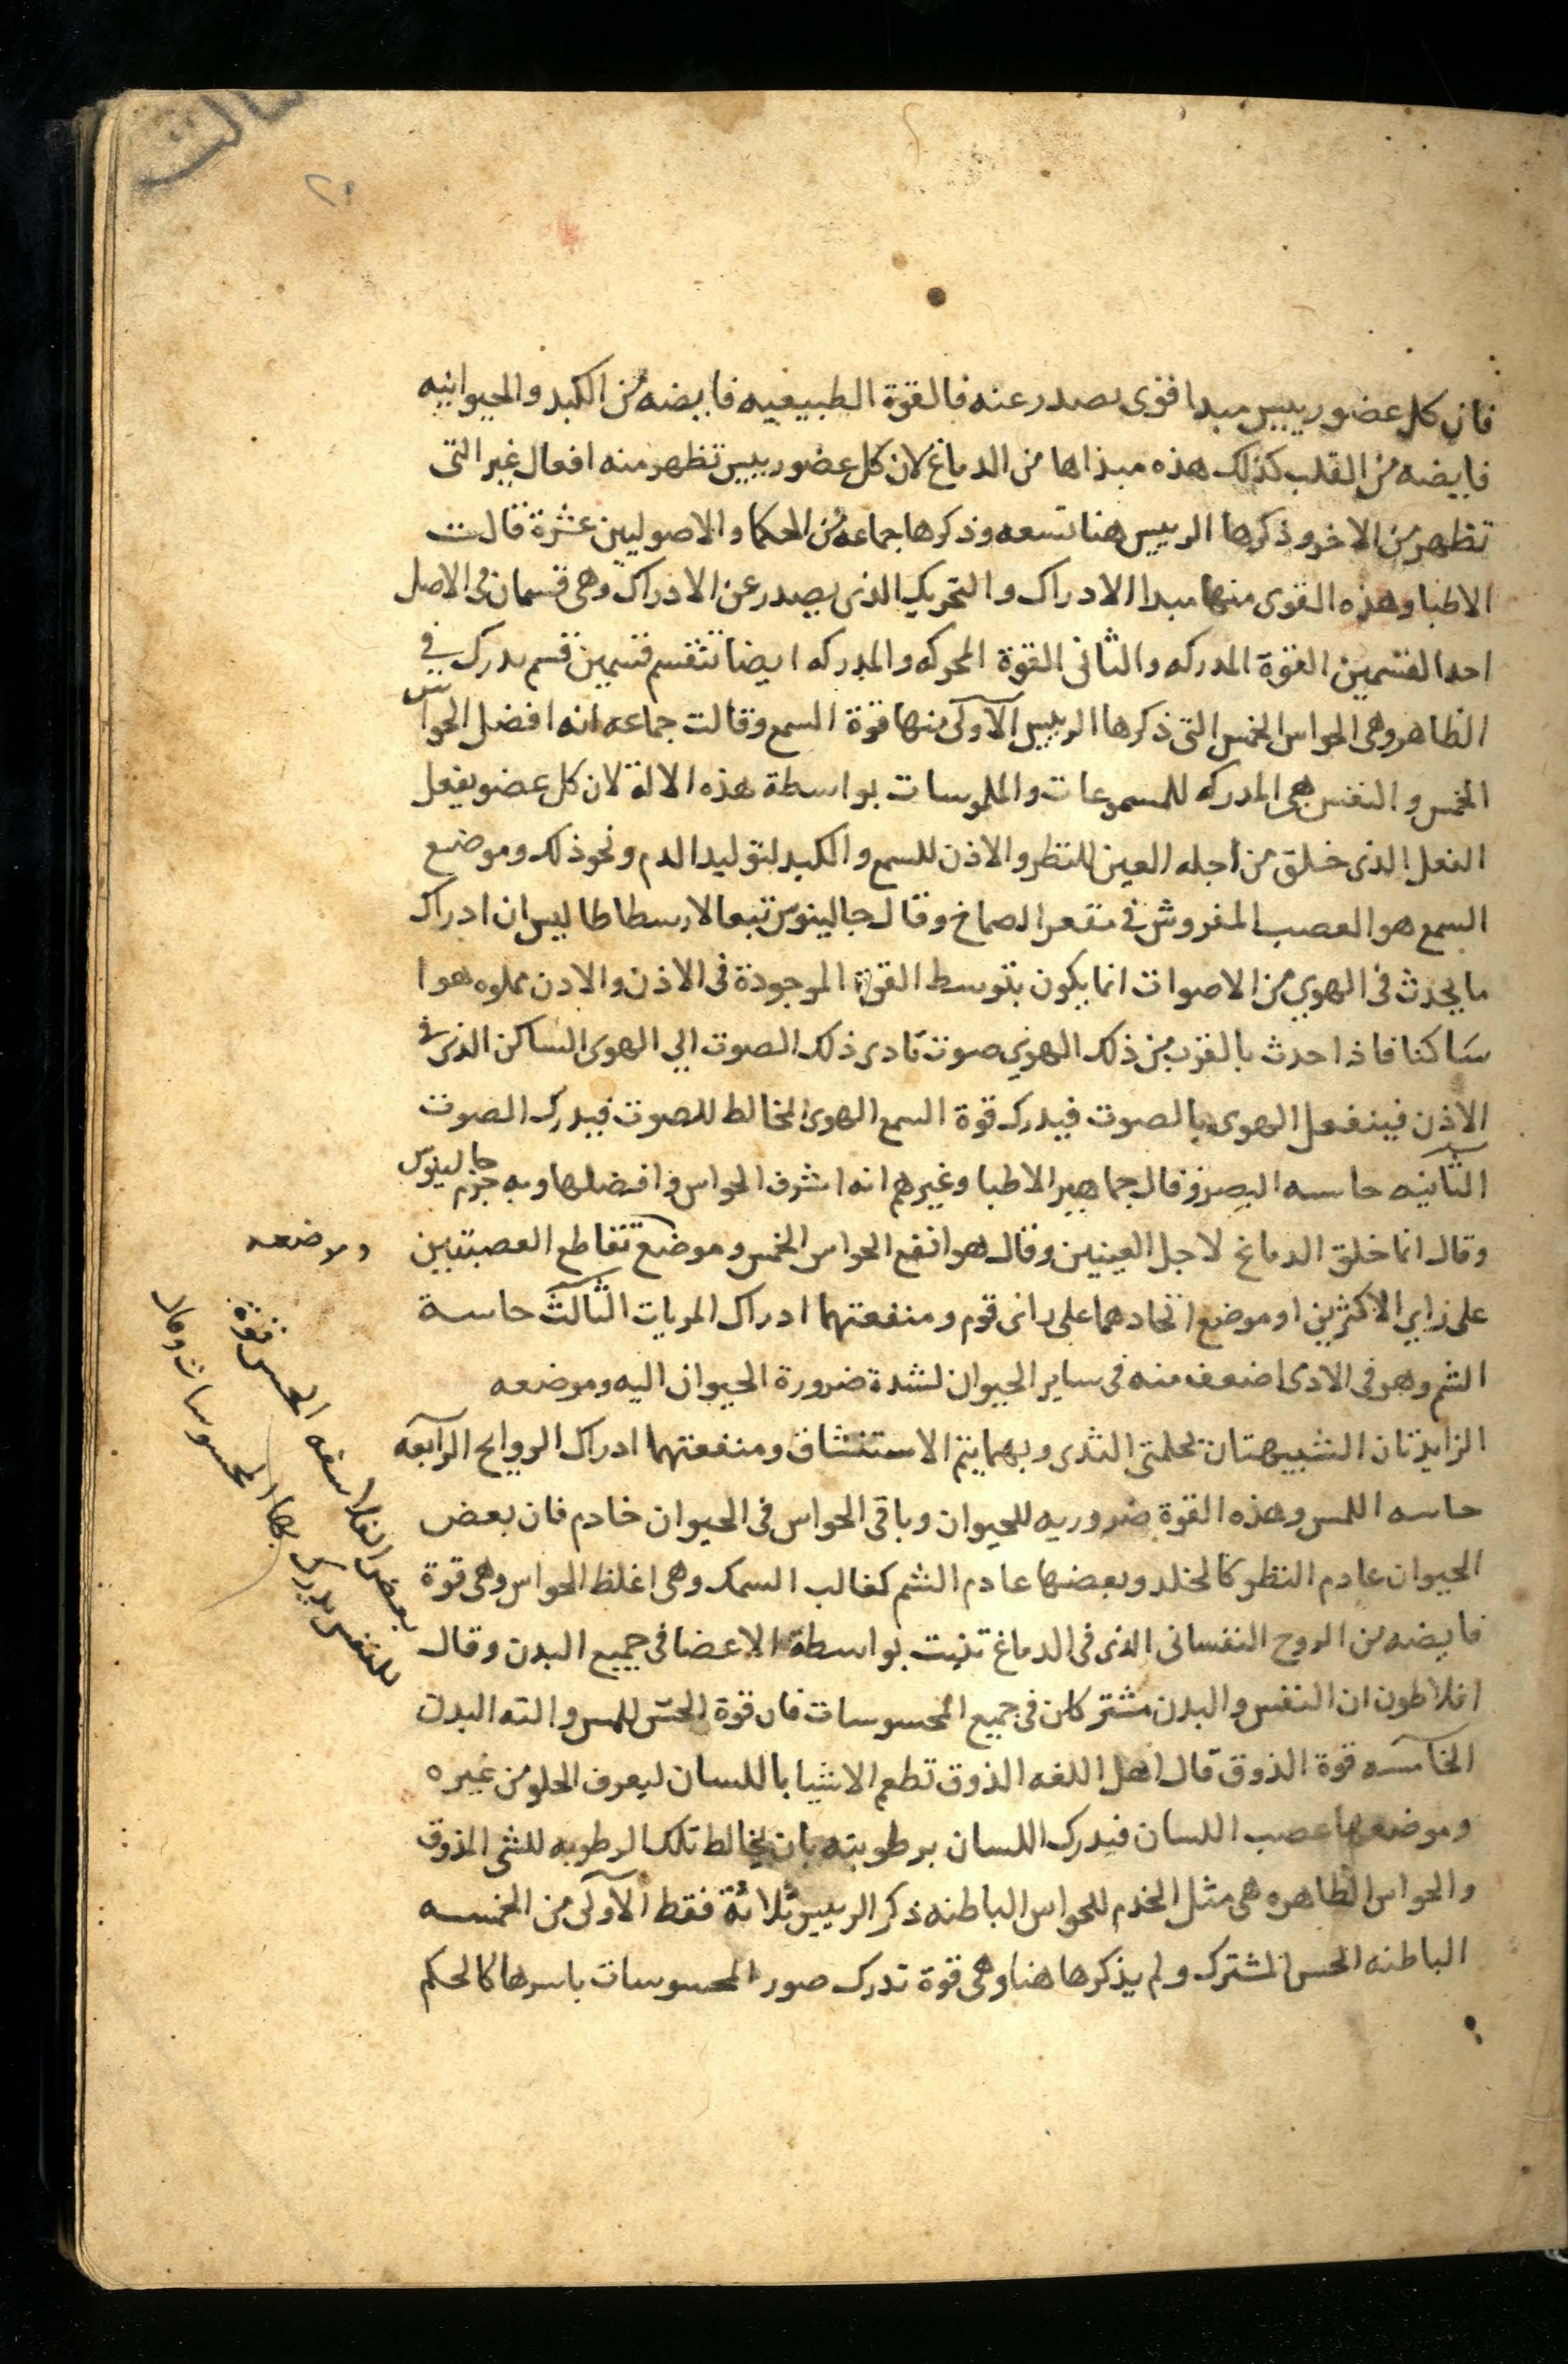 فان كل عضو رييس مبدا قوى يصدر عنه فالقوة الطبيعيه فايضه من الكبد والحيوانيه
فايضه من القلب كذلك هذه مبداها من الدماغ لان كل عضو رييس تظهر منه افعال غير التى
تظهر من الاخر وذكرها الرييس هنا تسعه وذكرها جماعه من الحكما والاصوليين عشرة قالت
الاطبا وهذه القوى منها مبدا الادراك والتحريك الذى يصدر عن الادراك وهى قسمان فى الاصل
احد القسمين القوة المدركه والثانى القوة المحركه والمدركه ايضا تنقسم قسمين قسم يدرك فى
الظاهر وهى الحواس الخمس التى ذكرها الرييس الاولى منها قوة السمع وقالت جماعه انه افضل الحواس
الخمس والنفس هى المدركه للمسموعات والملموسات بواسطة هذه الالة لان كل عضو يفعل
الفعل الذى خلق من اجله العين للنظر والاذن للسمع والكبد لتوليد الدم ونحو ذلك وموضع
السمع هو العصب المفروش فى مقعر الصماخ وقال جالينوس تبعا لارسطاطاليس ان ادراك
ما يحدث فى الهوى من الاصوات انما يكون بتوسط القوة الموجودة فى الاذن والاذن مملوه هوا
ساكنا فاذا حدث بالقرب من ذلك الهوى صوت تادى ذلك الصوت الى الهوى الساكن الذى فى
الاذن فينفعل الهوى بالصوت فيدرك قوة السمع الهوى المخالط للصوت فيدرك الصوت
الثانيه حاسه البصر وقال جماهير الاطبا وغيرهم انه اشرف الحواس وافضلها وبه جزم جالينوس
وقال انما خلق الدماغ لاجل العينين وقال هو انفع الحواس الخمس وموضع تقاطع العصبتين
وموضعه
على راي الاكثرين او موضع اتحادهما على راى قوم ومنفعتهما ادراك المريات الثالث حاسة
الشم وهو فى الادى اضعف منه فى ساير الحيوان لشدة ضرورة الحيوان اليه وموضعه
الزايدتان الشبيهتان بحلمتى الثدى وبهما يتم الاستنشاق ومنفعتهما ادراك الروايح الرابعه
حاسه اللمس وهذه القوة ضروريه للحيوان وباقى الحواس فى الحيوان خادم فان بعض
الحيوان عادم النظر كالخلد وبعضها عادم الشم كغالب السمك وهى اغلظ الحواس وهى قوة
فايضه من الروح النفسانى الذى فى الدماغ تنبت بواسطة الاعضا فى جميع البدن وقال
افلاطون ان النفس والبدن مشتركان فى جميع المحسوسات فان قوة الحس للمس والته البدن
الخامسه قوة الذوق قال اهل اللغه الذوق تطعم الاشيا باللسان ليعرف الحلو من غيره
وموضعها عصب اللسان فيدرك اللسان برطوبته بان يخالط تلك الرطوبه للشى المذوق
والحواس الظاهره هى مثل الخدم للحواس الباطنه ذكر الرييس ثلاثة فقط الاولى من الخمسه
الباطنه الحس المشترك ولم يذكرها هنا وهى قوة تدرك صور المحسوسات باسرها كالحكم
بعض الفلاسفه الحس قوة
للنفس يدرك بها المحسوسات وقال